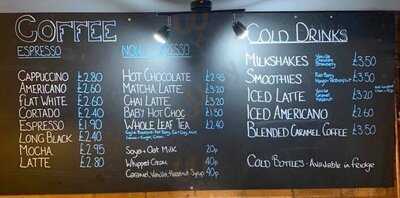 COFFEE
ESPRESSO
CAPPUCCINO £2.80
AMERICANO £2.60
FLAT WHITE £2.60
CORTADO £2.40
ESPRESSO £1.90
LONG BLACK £2.40
MOCHA £2.95
LATTE £2.80
HOT CHOCOLATE £2.95
MATCHA LATTE £3.20
CHAI LATTE £3.20
BABY HOT CHOC £1.50
WHOLE LEAF TEA £2.40
Soya + Oat Milk 20p
Whipped Cream 40p
Caramel, Vanilla, Hazelnut Syrup 40p
COLD DRINKS
MILKSHAKES Vanilla Chocolate Strawberry £3.50
SMOOTHIES £3.50
ICED LATTE £3.20
ICED AMERICANO £2.60
BLENDED CARAMEL COFFEE £3.50
COLD BOTTLES - Available in fridge